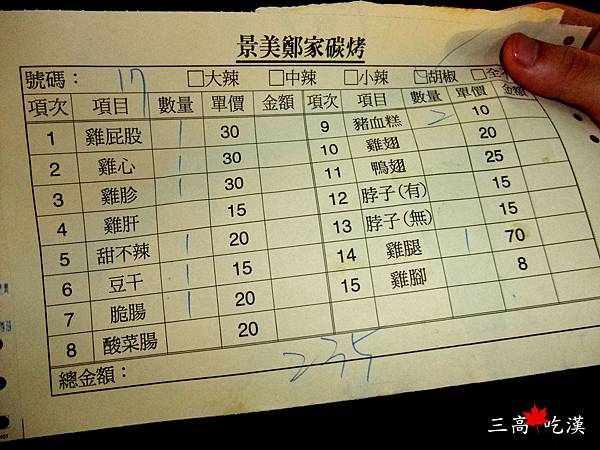 景美鄭家碳烤
號碼： 17 □大辣 □中辣 □小辣 ☑胡椒 □全
項次 項目 數量 單價 金額 項次 項目 數量 單價 金額
1 雞屁股 1 30 9 豬血糕 2 10
2 雞心 1 30 10 雞翅 20
3 雞胗 1 30 11 鴨翅 25
4 雞肝 15 12 脖子(有) 15
5 甜不辣 1 20 13 脖子(無) 15
6 豆干 1 15 14 雞腿 1 70
7 脆腸 1 20 15 雞腳 8
8 酸菜腸 20
總金額： 235
三高吃漢